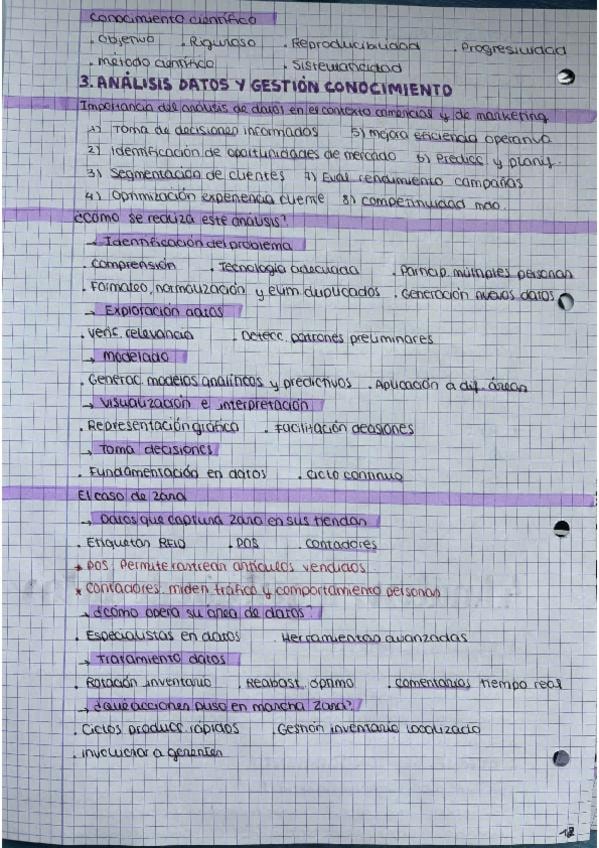 Conocimiento científico
. Objetivo . Riguroso . Reproducibilidad . Progresividad
. método científico . Sistematicidad
3. ANÁLISIS DATOS Y GESTIÓN CONOCIMIENTO
Importancia del análisis de datos en el contexto comercias y de marketing
1) Toma de decisiones informadas 5) mejora eficiencia operativa
2) Identificación de oportunidades de mercado 6) Predicc. y planif.
3) Segmentación de clientes 7) Eval rendimiento campañas
4) Optimización experiencia cliente 8) competitividad mdo.
¿Cómo se realiza este análisis?
→ Identificación del problema
. comprensión . Tecnología adecuada . Particip. múltiples personas
. Formateo, normalización y elim. duplicados . Generación nuevos datos
→ Exploración datos
. Verif. relevancia . Detecc. patrones preliminares
→ modelado
. Generac. modelos analíticos y predictivos . Aplicación a dif. áreas
→ visualización e interpretación
. Representación gráfica . Facilitación decisiones
→ Toma decisiones
. Fundamentación en datos . Ciclo continuo
El caso de Zara
→ Datos que captura Zara en sus tiendas
. Etiquetas RFID . POS . contadores
* POS: Permite rastrean artículos vendidos
* contadores: miden tráfico y comportamiento personas
→ ¿Cómo opera su área de datos?
. Especialistas en datos . Herramientas avanzadas
→ Tratamiento datos
. Rotación inventario . Reabast. óptimo . comentarios tiempo real
→ ¿Qué acciones puso en marcha Zara?
. Ciclos producc. rápidos . Gestión inventario localizada
. involucrar a gerentes